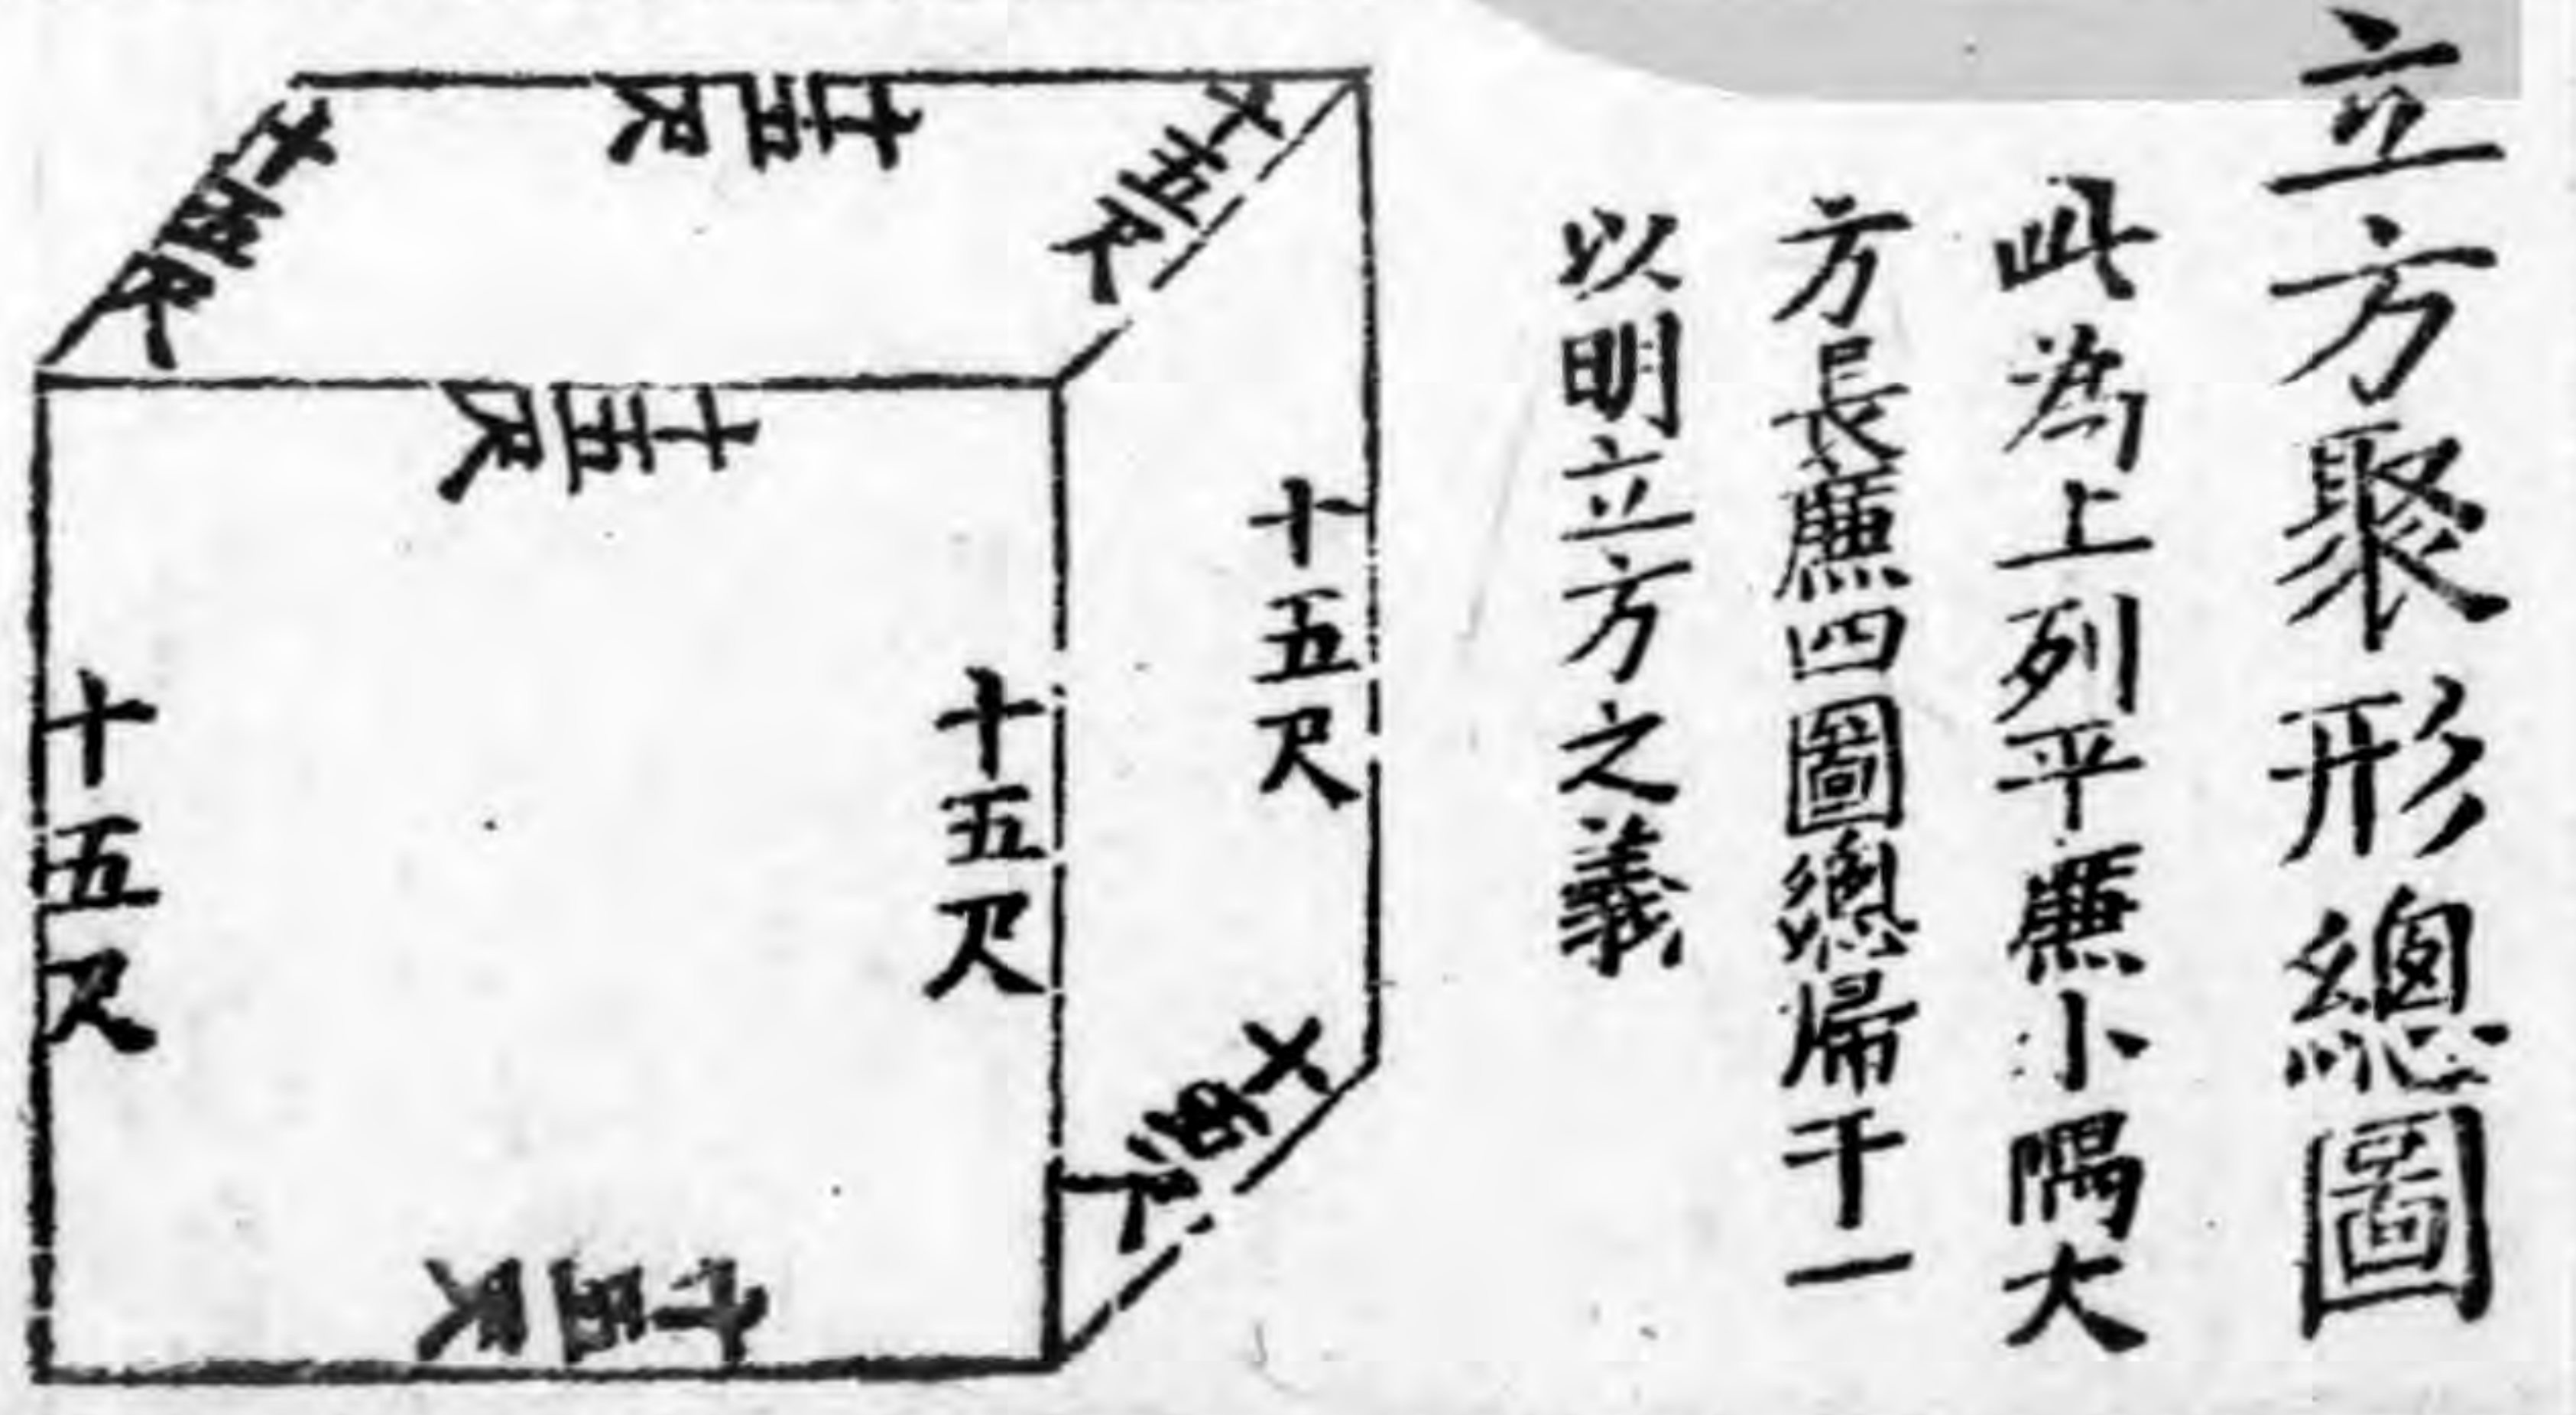 立方聚形總圖
此為上列平廉小隅大
方長廉四圖總歸于一
以明立方之義
十五尺
十五尺
十五尺
十五尺
十五尺
十五尺
十五尺
十五尺
十五尺